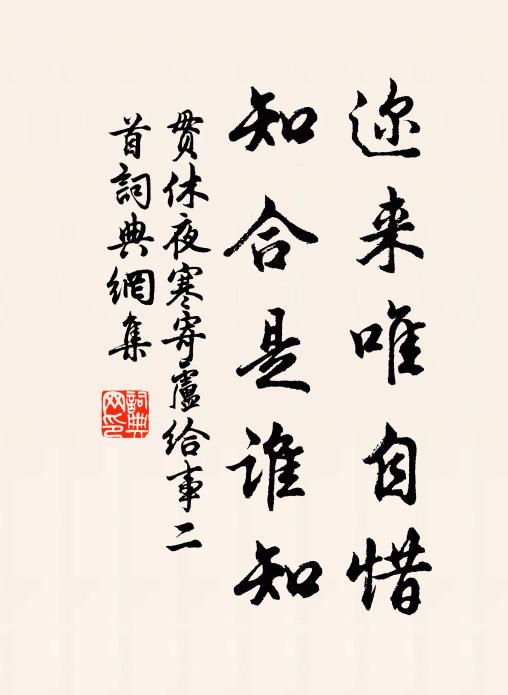 迩来唯自惜
知合是谁知
贯休夜寒寄盧给事二
首詞典網集
詞典
网印